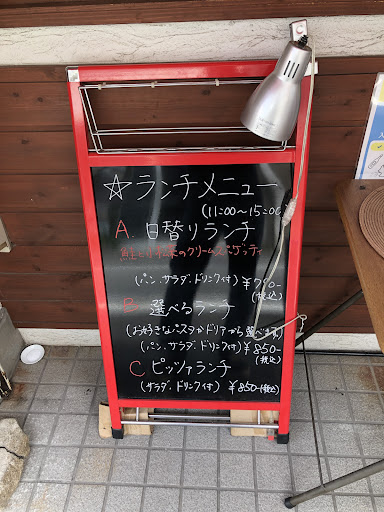 ☆ランチメニュー
(11:00～15:00)
A. 日替りランチ
のクリームスパゲッティ
(パン、サラダ、ドリンク付)
(税込)
B 選べるランチ
(お好きなパスタかドリアから選べます)
(パン、サラダ、ドリンク付) ¥850-
(税込)
C ピッツァランチ
(サラダ、ドリンク付) ¥850-(税込)